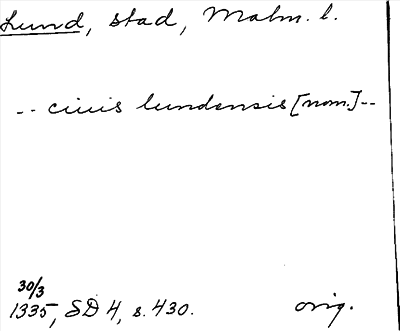 Lund, stad, Malm. l.
-- ciuis lundensis [nom.] --
30/3
1335, SD 4, s. 430. orig.